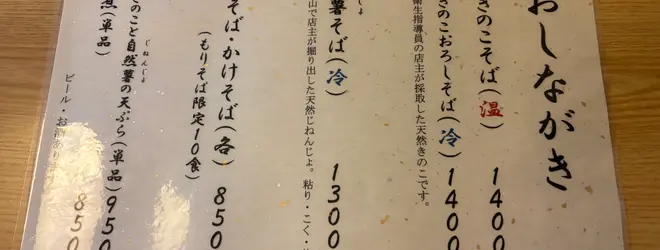 おしながき
きのこそば(温) 1400
きのこおろしそば(冷) 1400
衛生指導員の店主が採取した天然きのこです。
薯そば(冷) 1300
山で店主が掘り出した天然じねんじょ。粘り・こく・
そば・かけそば(各) 850
(もりそば限定10食)
のこと自然薯の天ぷら(単品) 950
じねんじょ
煮(単品) 850
ビール・お酒あり